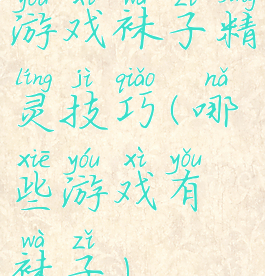 yóu xì wà zi jīng
游戏袜子精
líng jì qiǎo nǎ
灵技巧(哪
xiē yóu xì yǒu
些游戏有
wà zǐ
袜子)